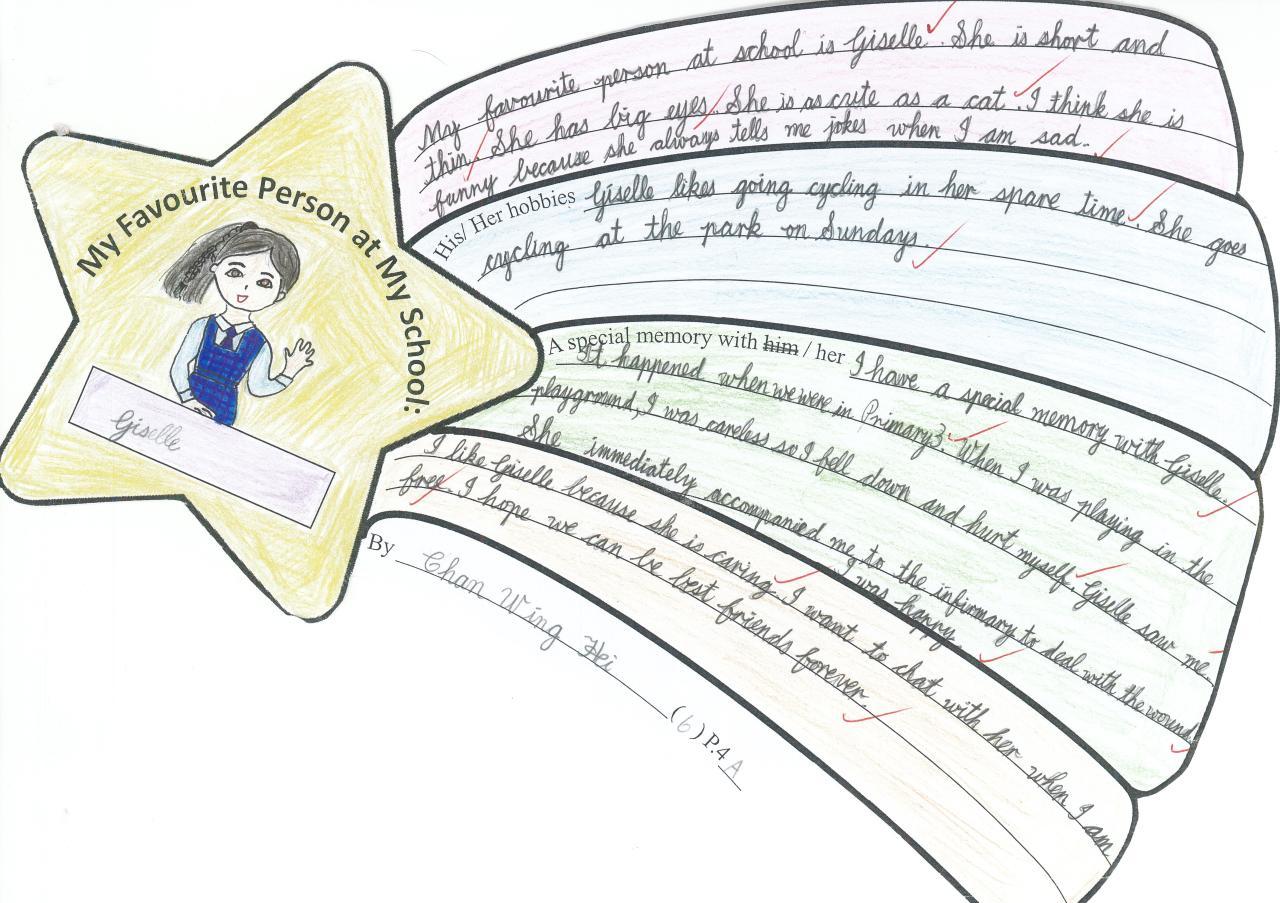 My Favourite Person at My School:
Giselle
My favourite person at school is Giselle. She is short and
thin. She has big eyes. She is as cute as a cat. I think she is
funny because she always tells me jokes when I am sad.
His/ Her hobbies Giselle likes going cycling in her spare time. She goes
cycling at the park on Sundays.
A special memory with him / her I have a special memory with Giselle.
It happened when we were in Primary 3. When I was playing in the
playground, I was careless so I fell down and hurt myself. Giselle saw me.
She immediately accompanied me to the infirmary to deal with the wound.
I was happy.
I like Giselle because she is caring. I want to chat with her when I am
free. I hope we can be best friends forever.
By Chan Wing Hei (6) P.4 A